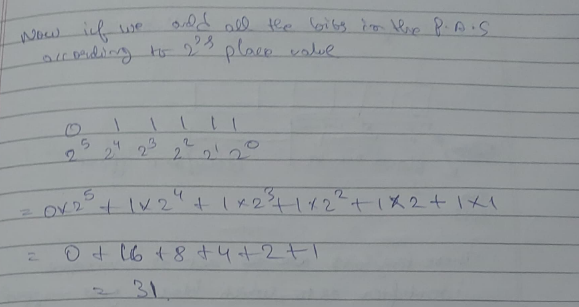 Now if we add all the bits in the P.A.S
according to 2's place value
0 1 1 1 1 1
2⁵ 2⁴ 2³ 2² 2¹ 2⁰
= 0×2⁵ + 1×2⁴ + 1×2³ + 1×2² + 1×2 + 1×1
= 0 + 16 + 8 + 4 + 2 + 1
= 31.